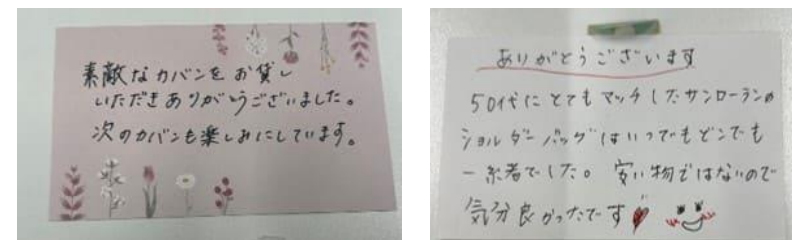 素敵なカバンをお貸し
いただきありがとうございました。
次のカバンも楽しみにしています。
ありがとうございます
50代にとてもマッチしたサンローランの
ショルダーバッグはいつでもどこでも
一緒でした。安い物ではないので
気分良かったです